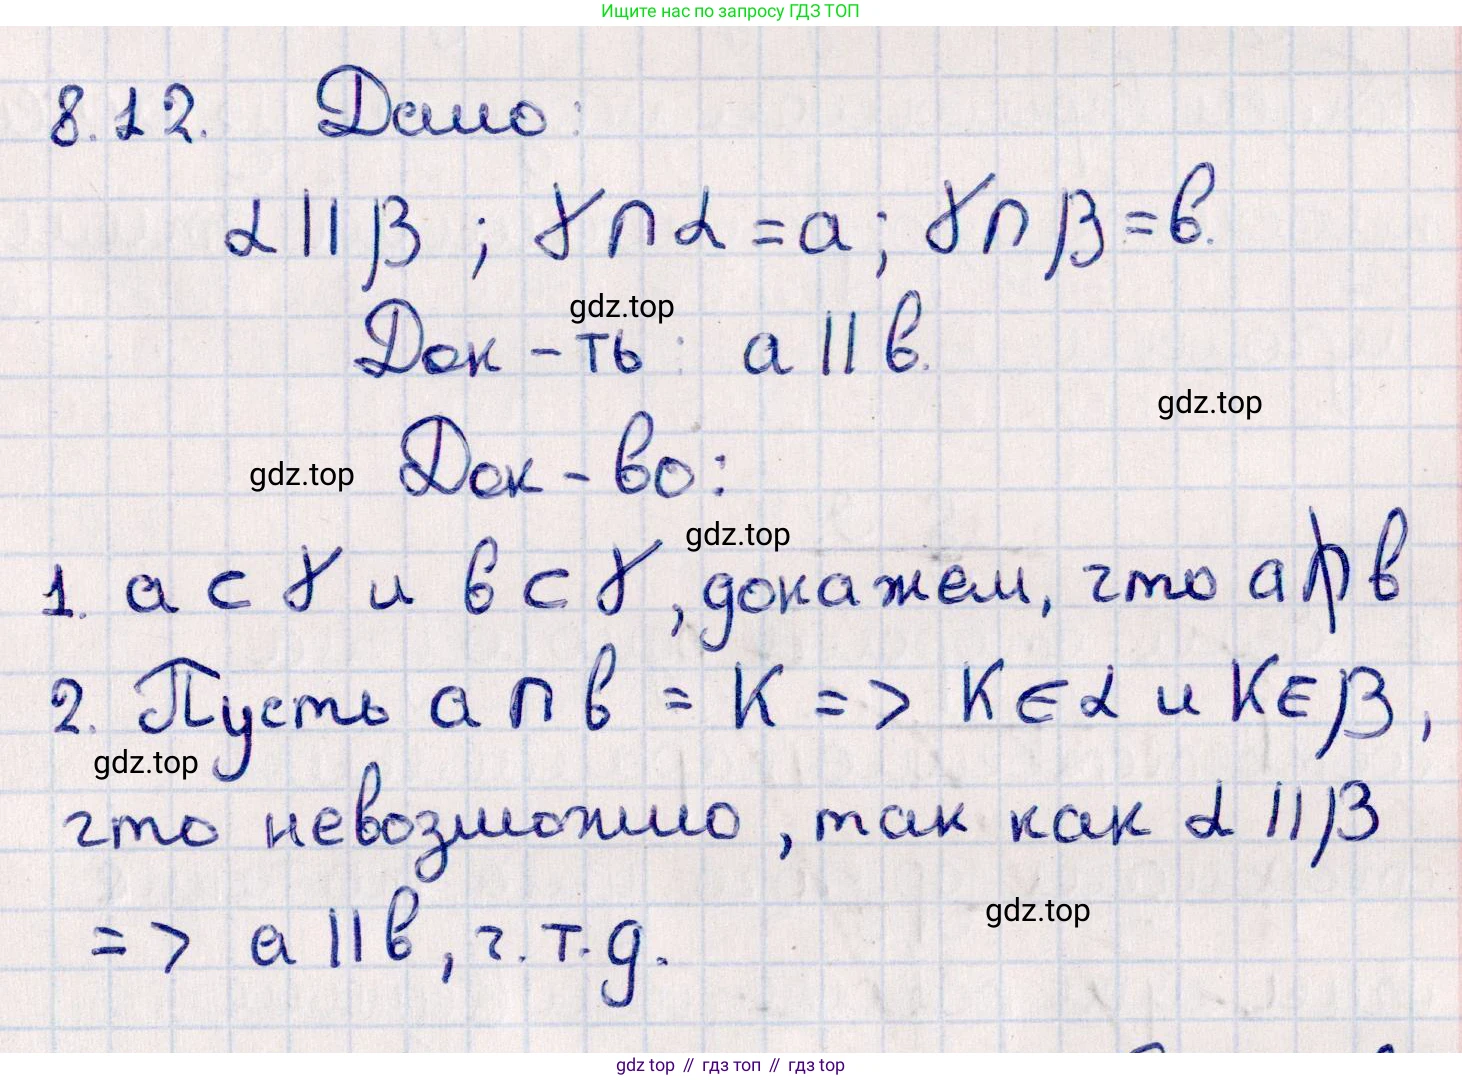 Ищите нас по запросу ГДЗ ТОП
8.12. Дано:
α || β ; γ ∩ α = a ; γ ∩ β = b.
gdz.top
Док-ть: a || b.
gdz.top
gdz.top
Док-во:
gdz.top
1. a ⊂ γ и b ⊂ γ, докажем, что a ∩̸ b
2. Пусть a ∩ b = K => K ∈ α и K ∈ β,
gdz.top
что невозможно, так как α || β
gdz.top
=> a || b, ч.т.д.
gdz top // гдз топ // gdz top